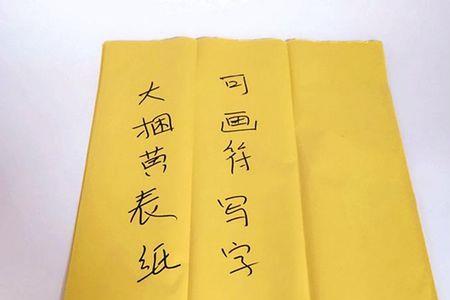 可画符写字
大捆黄表纸